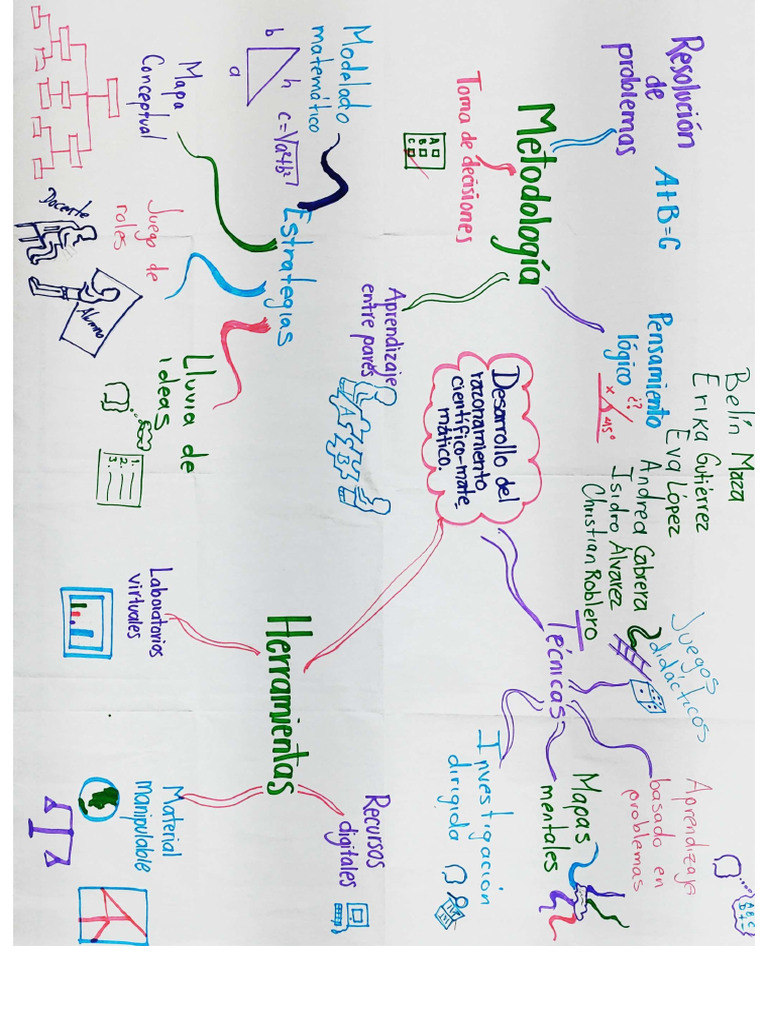 Belín Maza
Erika Gutiérrez
Eva López
Andrea Cabrera
Isidro Álvarez
Christian Roblero
Desarrollo del
razonamiento
científico-mate
mático.
Metodología
Resolución
de
problemas
A+B=C
Toma de decisiones
A
B
C
Pensamiento
lógico
¿?
x
45°
Aprendizaje
entre pares
A
B
Técnicas
Juegos
didácticos
Aprendizaje
basado en
problemas
A B C
Mapas
mentales
Investigación
dirigida
Estrategias
Modelado
matemático
b
h
a
c=√a²+b²
Mapa
Conceptual
Juego de
roles
Docente
Alumno
Lluvia de
ideas
1.
2.
3.
Herramientas
Laboratorios
virtuales
Recursos
digitales
Material
manipulable